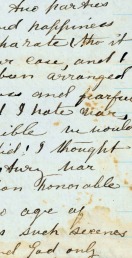 two parties
and happiness
separate tho it
our case, and I
been arranged
es and fearful
I hate war,
ible we would
did, I thought
ntury war
an honorable
age of
such scenes
and God only